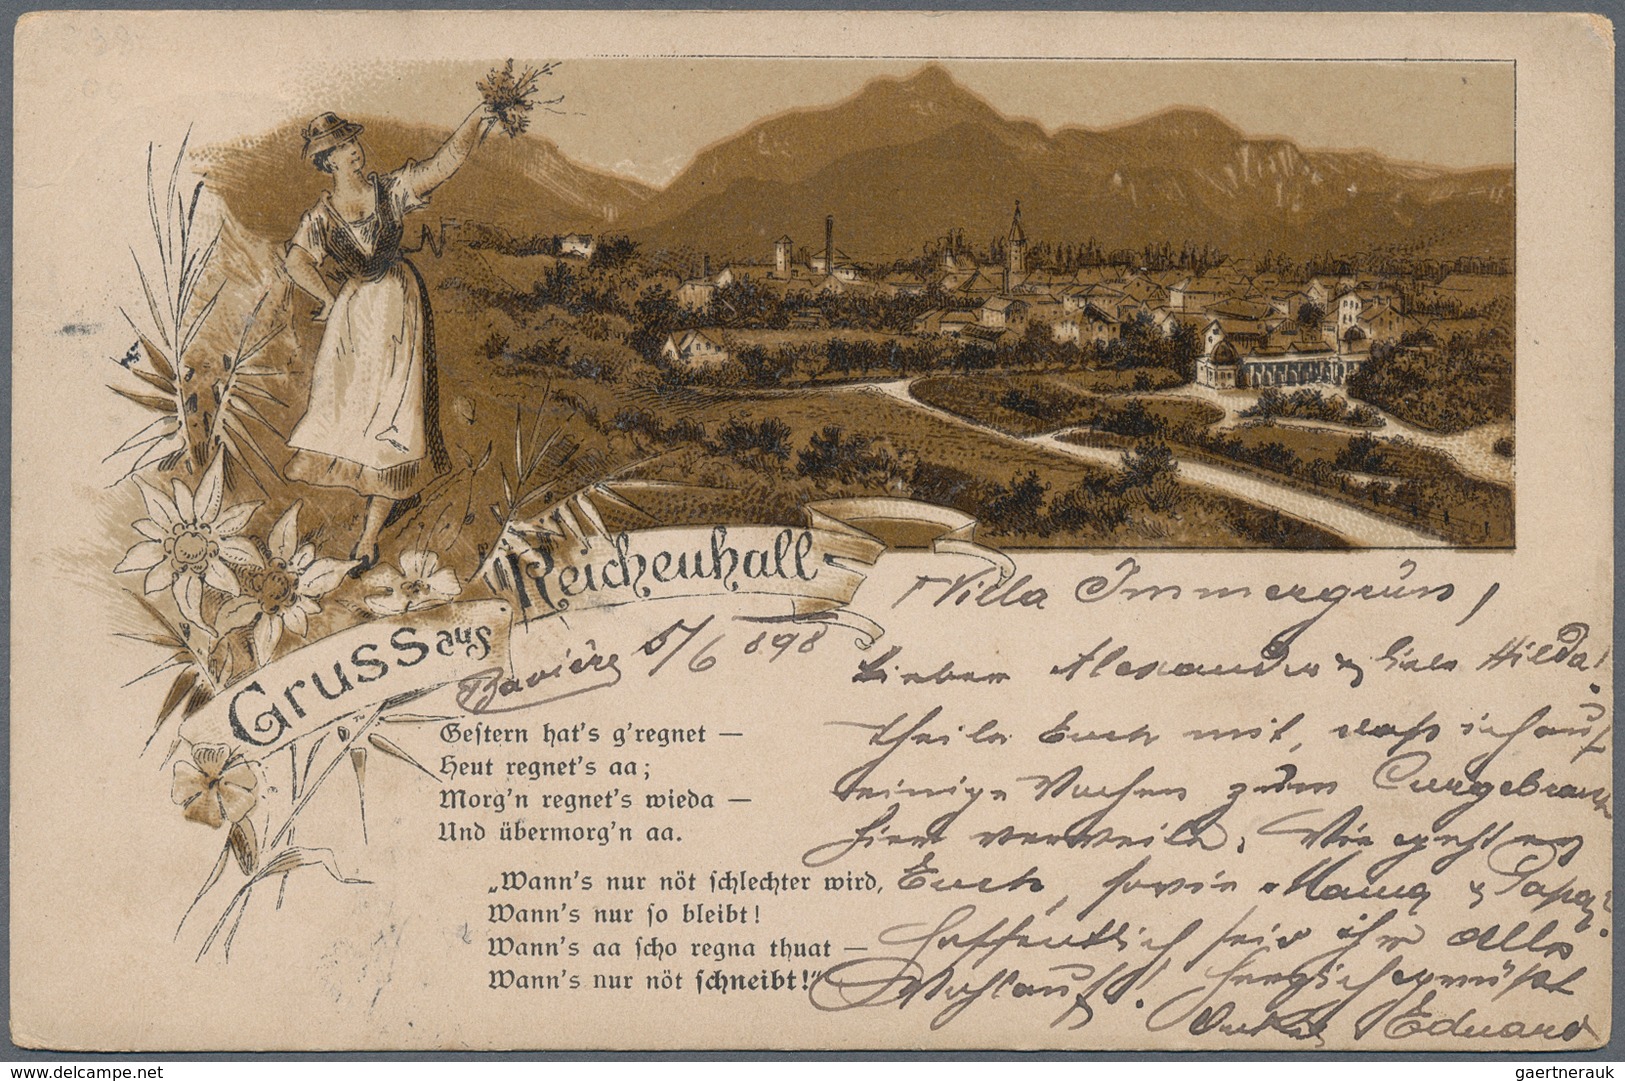 Gruss aus
Reichenhall
Villa Immergrün,
Bavière 5/6 898
Lieber Alexander & liebe Hilda!
theile Euch mit, dass ich auf
einige Wochen zum Curgebrauch
hier verweile, Wie geht es
Euch, sowie Mama & Papa?
Hoffentlich seid ihr Alle
Wohlauf! herzlich gegrüßt
Onkel Eduard
Gestern hat's g'regnet —
Heut regnet's aa;
Morg'n regnet's wieda —
Und übermorg'n aa.
„Wann's nur nöt schlechter wird,
Wann's nur so bleibt!
Wann's aa scho regna thuat —
Wann's nur nöt schneibt!"
www.delcampe.net
gaertnerauk